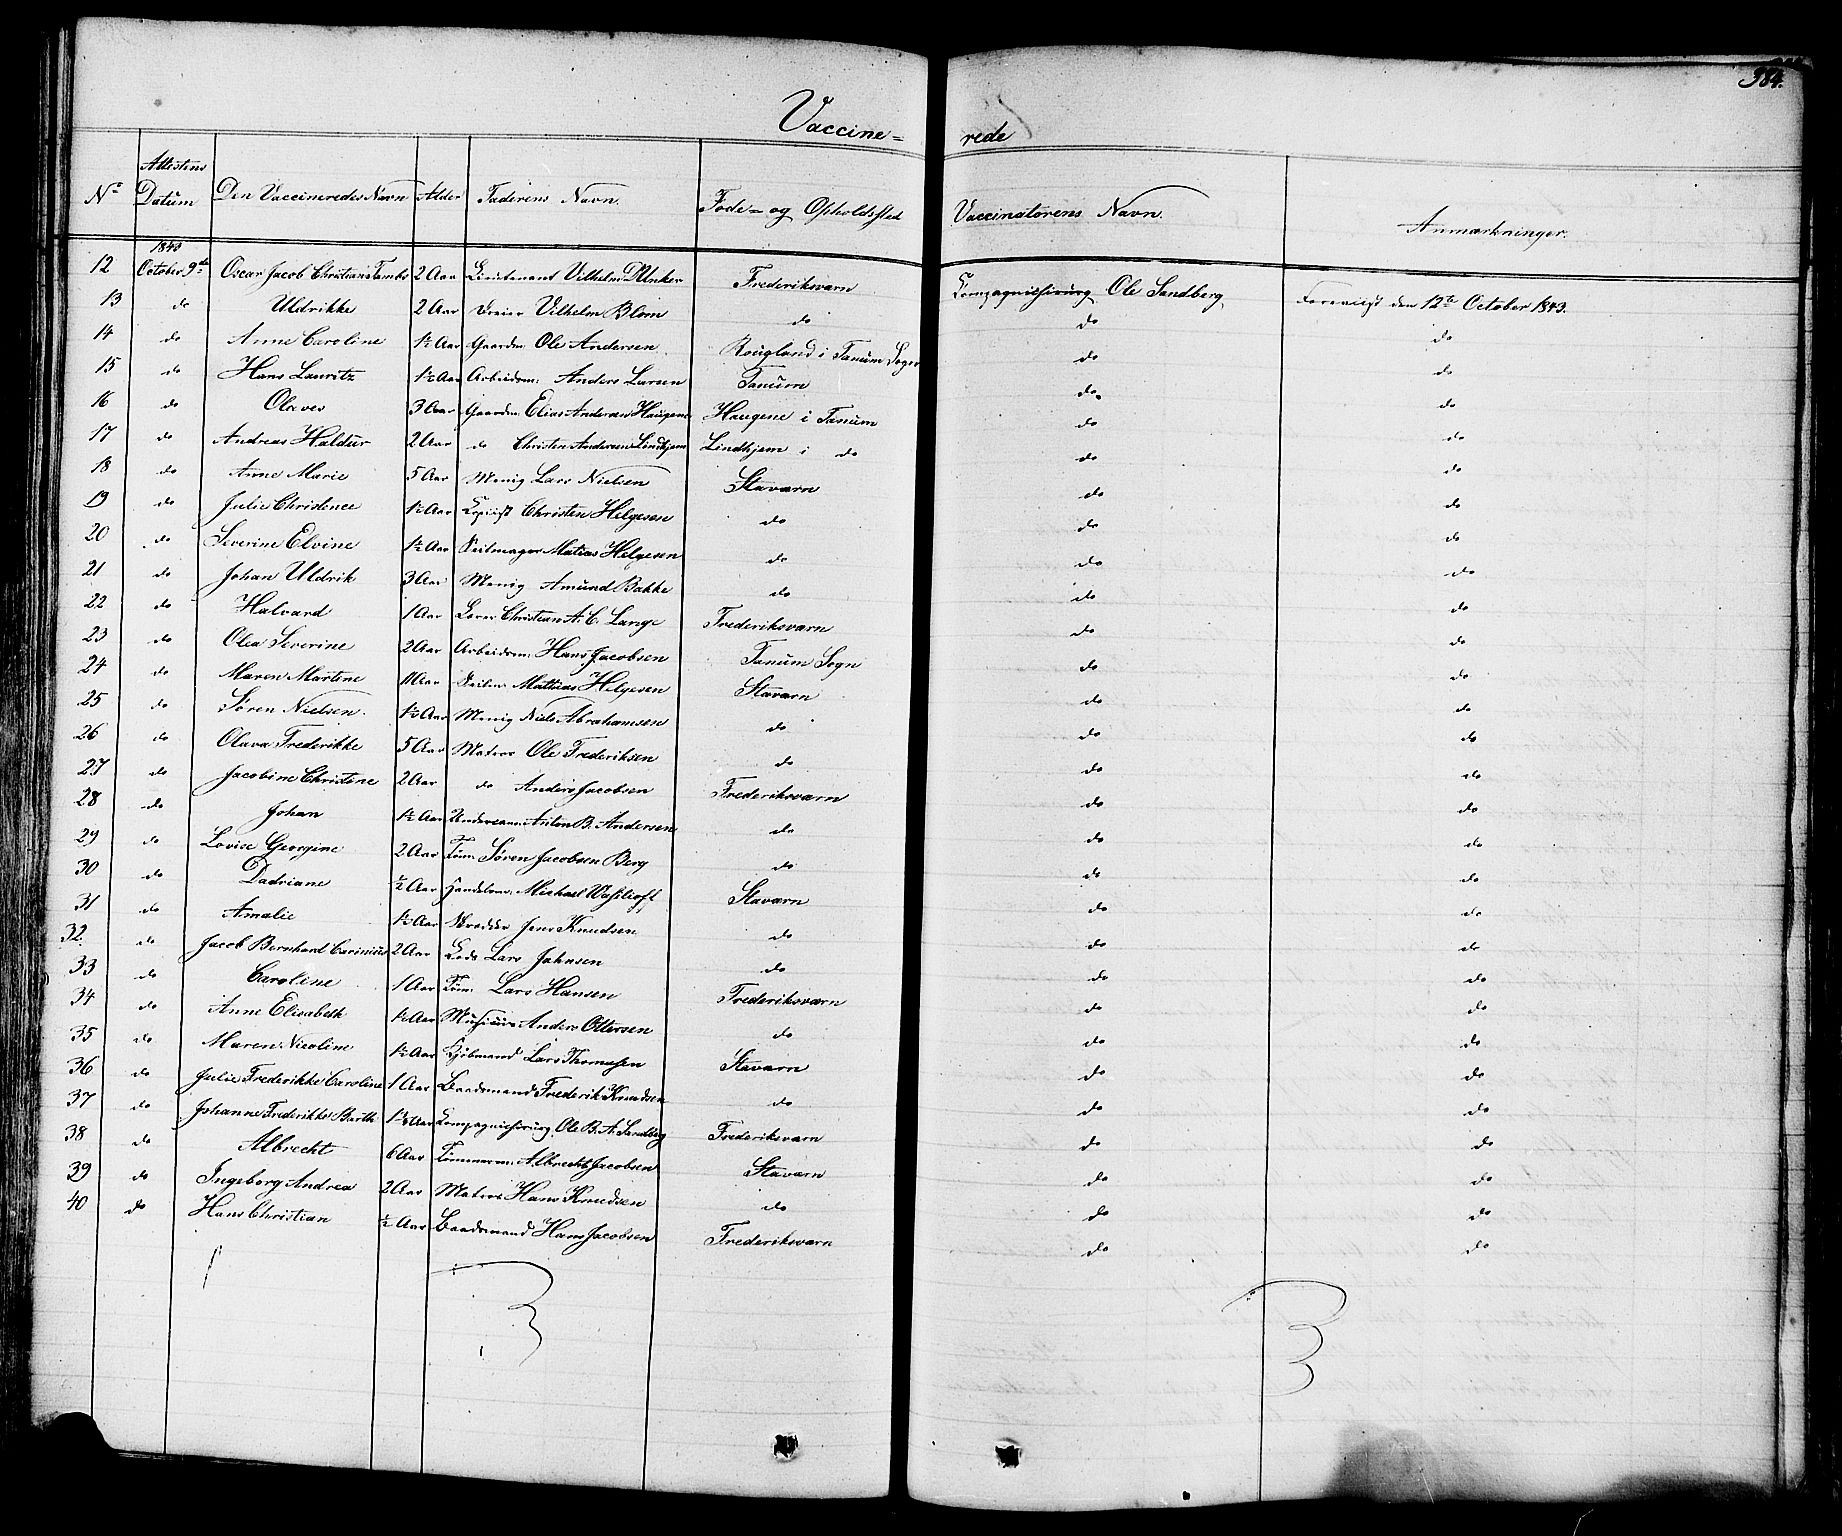 384.
Vaccine= rede
No Attestens Datum Den Vaccineredes Navn Alder Faderens Navn. Føde= og Opholdssted Vaccinatorens Navn. Anmærkninger.
1843
12 October 9de Oscar Jacob Christians 2 Aar Lieutenant Vilhelm Frederiksværn Compagniechirurg Ole Sandberg Foreviist den 12te October 1843.
13 do Uldrikke 2 Aar Vilhelm Blom do do do
14 do Anne Caroline 1½ Aar Gaardm. Ole Andersen Rougland i Tanum Sogn do do
15 do Hans Lauritz 1½ Aar Arbeidsm: Anders Larsen Tanum do do
16 do Olaves 3 Aar Gaardm: Elias Andersen Haugene Haugene i Tanum do do
17 do Andreas Haldur 2 Aar do Christen Andersen Lindhjem Lindhjem i do do do
18 do Anne Marie 5 Aar Menig Lars Nielsen Staværn do do
19 do Julie Christence 1½ Aar Copiist Christen Helgesen do do do
20 do Severine Elvine 1½ Aar Seilmager Matias Helgesen do do do
21 do Johan Uldrik 3 Aar Menig Amund Bakke do do do
22 do Halvard 1 Aar Christian A. C. Lange Frederiksværn do do
23 do Olea Severine 2 Aar Arbeidsm: Hans Jacobsen Tanum Sogn do do
24 do Maren Martine 11 Aar Seilm. Mathias Helgesen Staværn do do
25 do Søren Nielsen. 1½ Aar Menig Niels Abrahamsen do do do
26 do Olava Frederikke 5 Aar Matros Ole Frederiksen do do do
27 do Jacobine Christine 2 Aar do Anders Jacobsen Frederiksværn do do
28 do Johan 1½ Aar Anton B. Andersen do do do
29 do Lovise Georgine 2 Aar Tøm: Søren Jacobsen Berg do do do
30 do Dadriane ½ Aar Handelsm: Michael Staværn do do
31 do Amalie 1½ Aar Skrædder Jens Knudsen do do do
32. do Jacob Bernhard Carinius 2 Aar Lods Lars Johnsen do do do
33 do Caroline 1 Aar Tøm: Lars Hansen Frederiksværn do do
34 do Anne Elisabeth 1½ Aar Musicus Anders Ottersen do do do
35 do Maren Nicoline 1½ Aar Kjøbmand Lars Thomesen Staværn do do
36 do Julie Frederikke Caroline 1 Aar Baadsmand Frederik Knudsen do do do
37 do Johanne Frederikke Barth Aar Compagniechirurg. Ole B. A. Sandberg Frederiksværn do do
38 do Albrecht 6 Aar Tømmerm: Albrecht Jacobsen Staværn do do
39 do Ingeborg Andrea 2 Aar Matros Hans Knudsen do do do
40 do Hans Christian ½ Aar Baadsmand Hans Jacobsen Frederiksværn do do